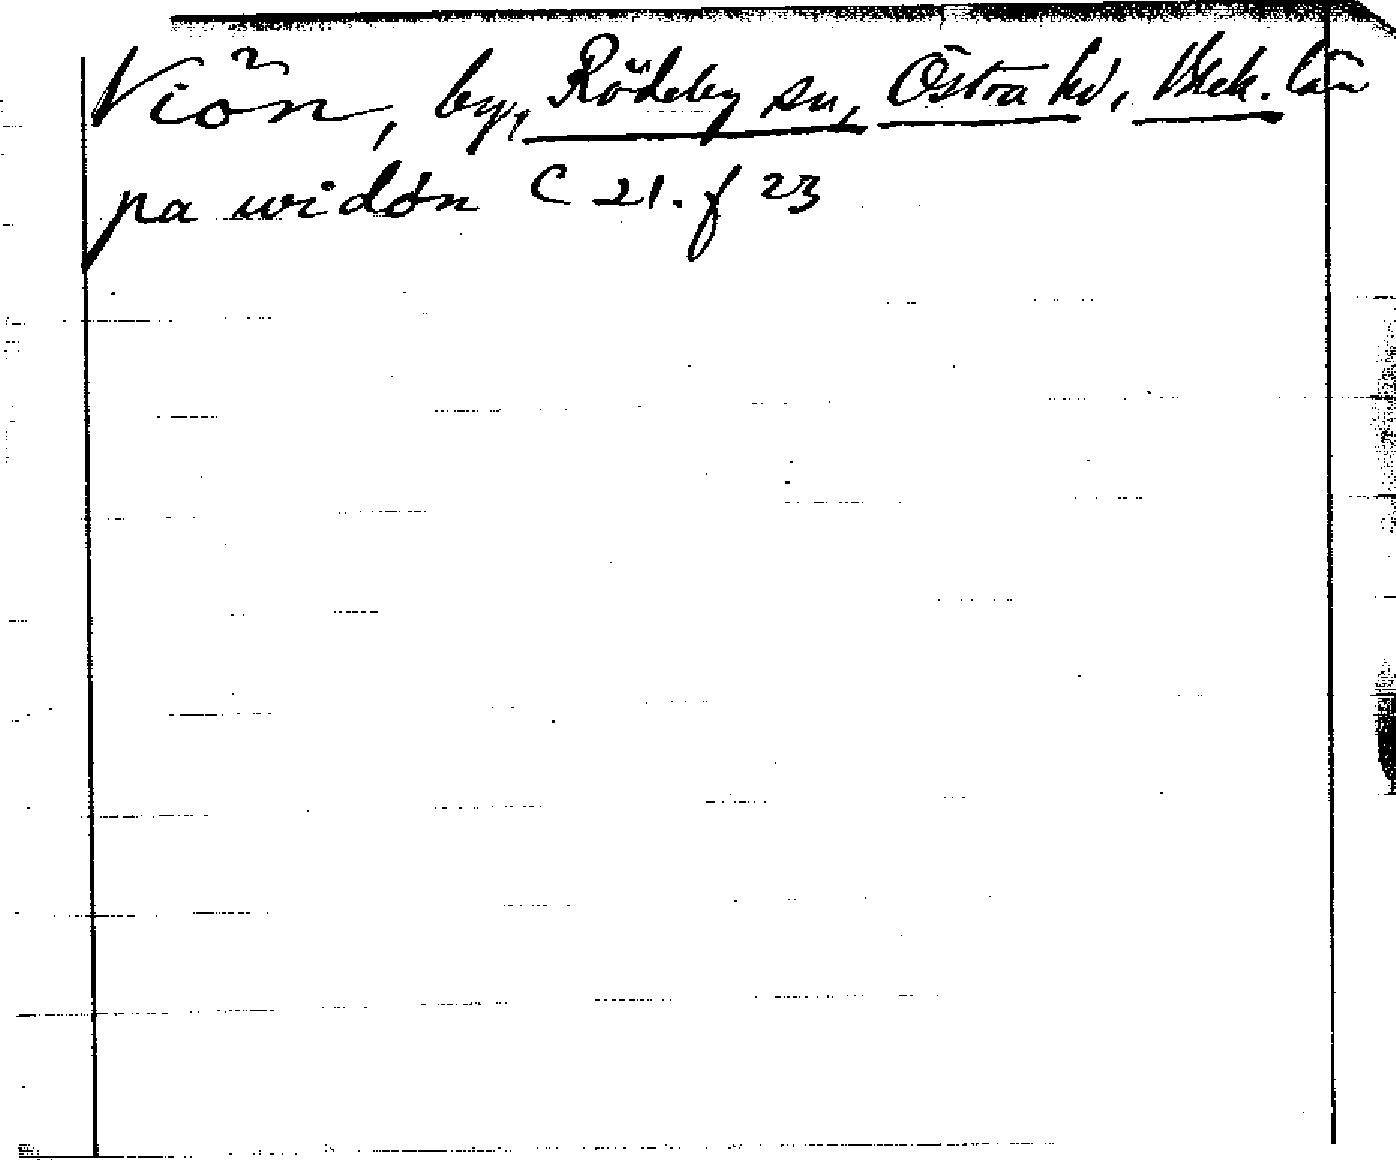 Viön, by, Rödeby sn, Östra hd, Blek. län
pa widön C 21. f 23